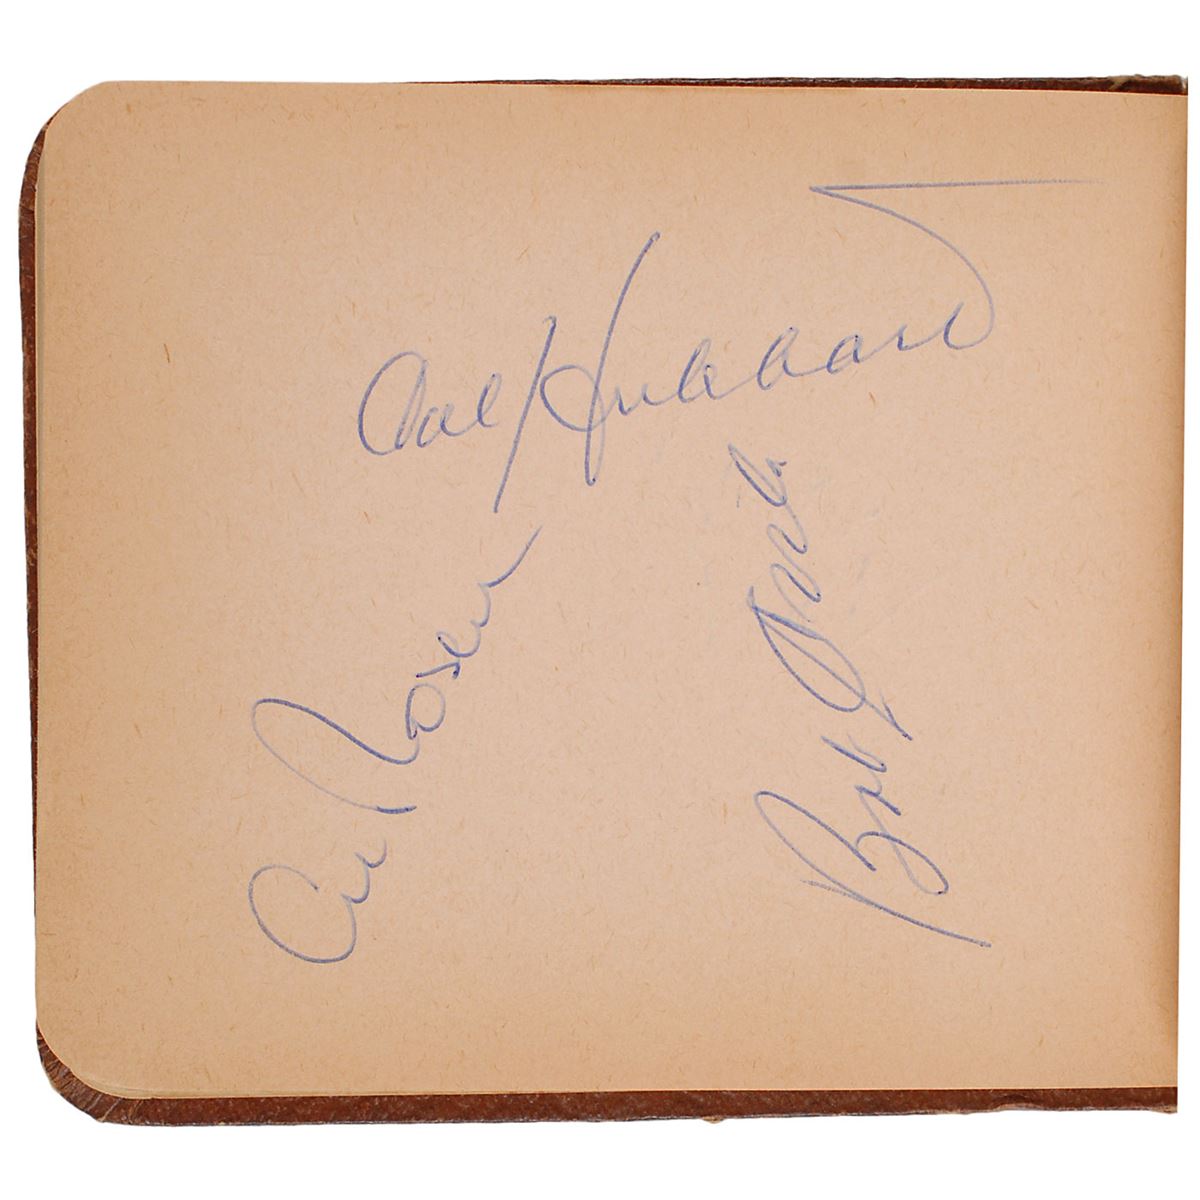 Cal Hubbard
Al Rosen
Bob